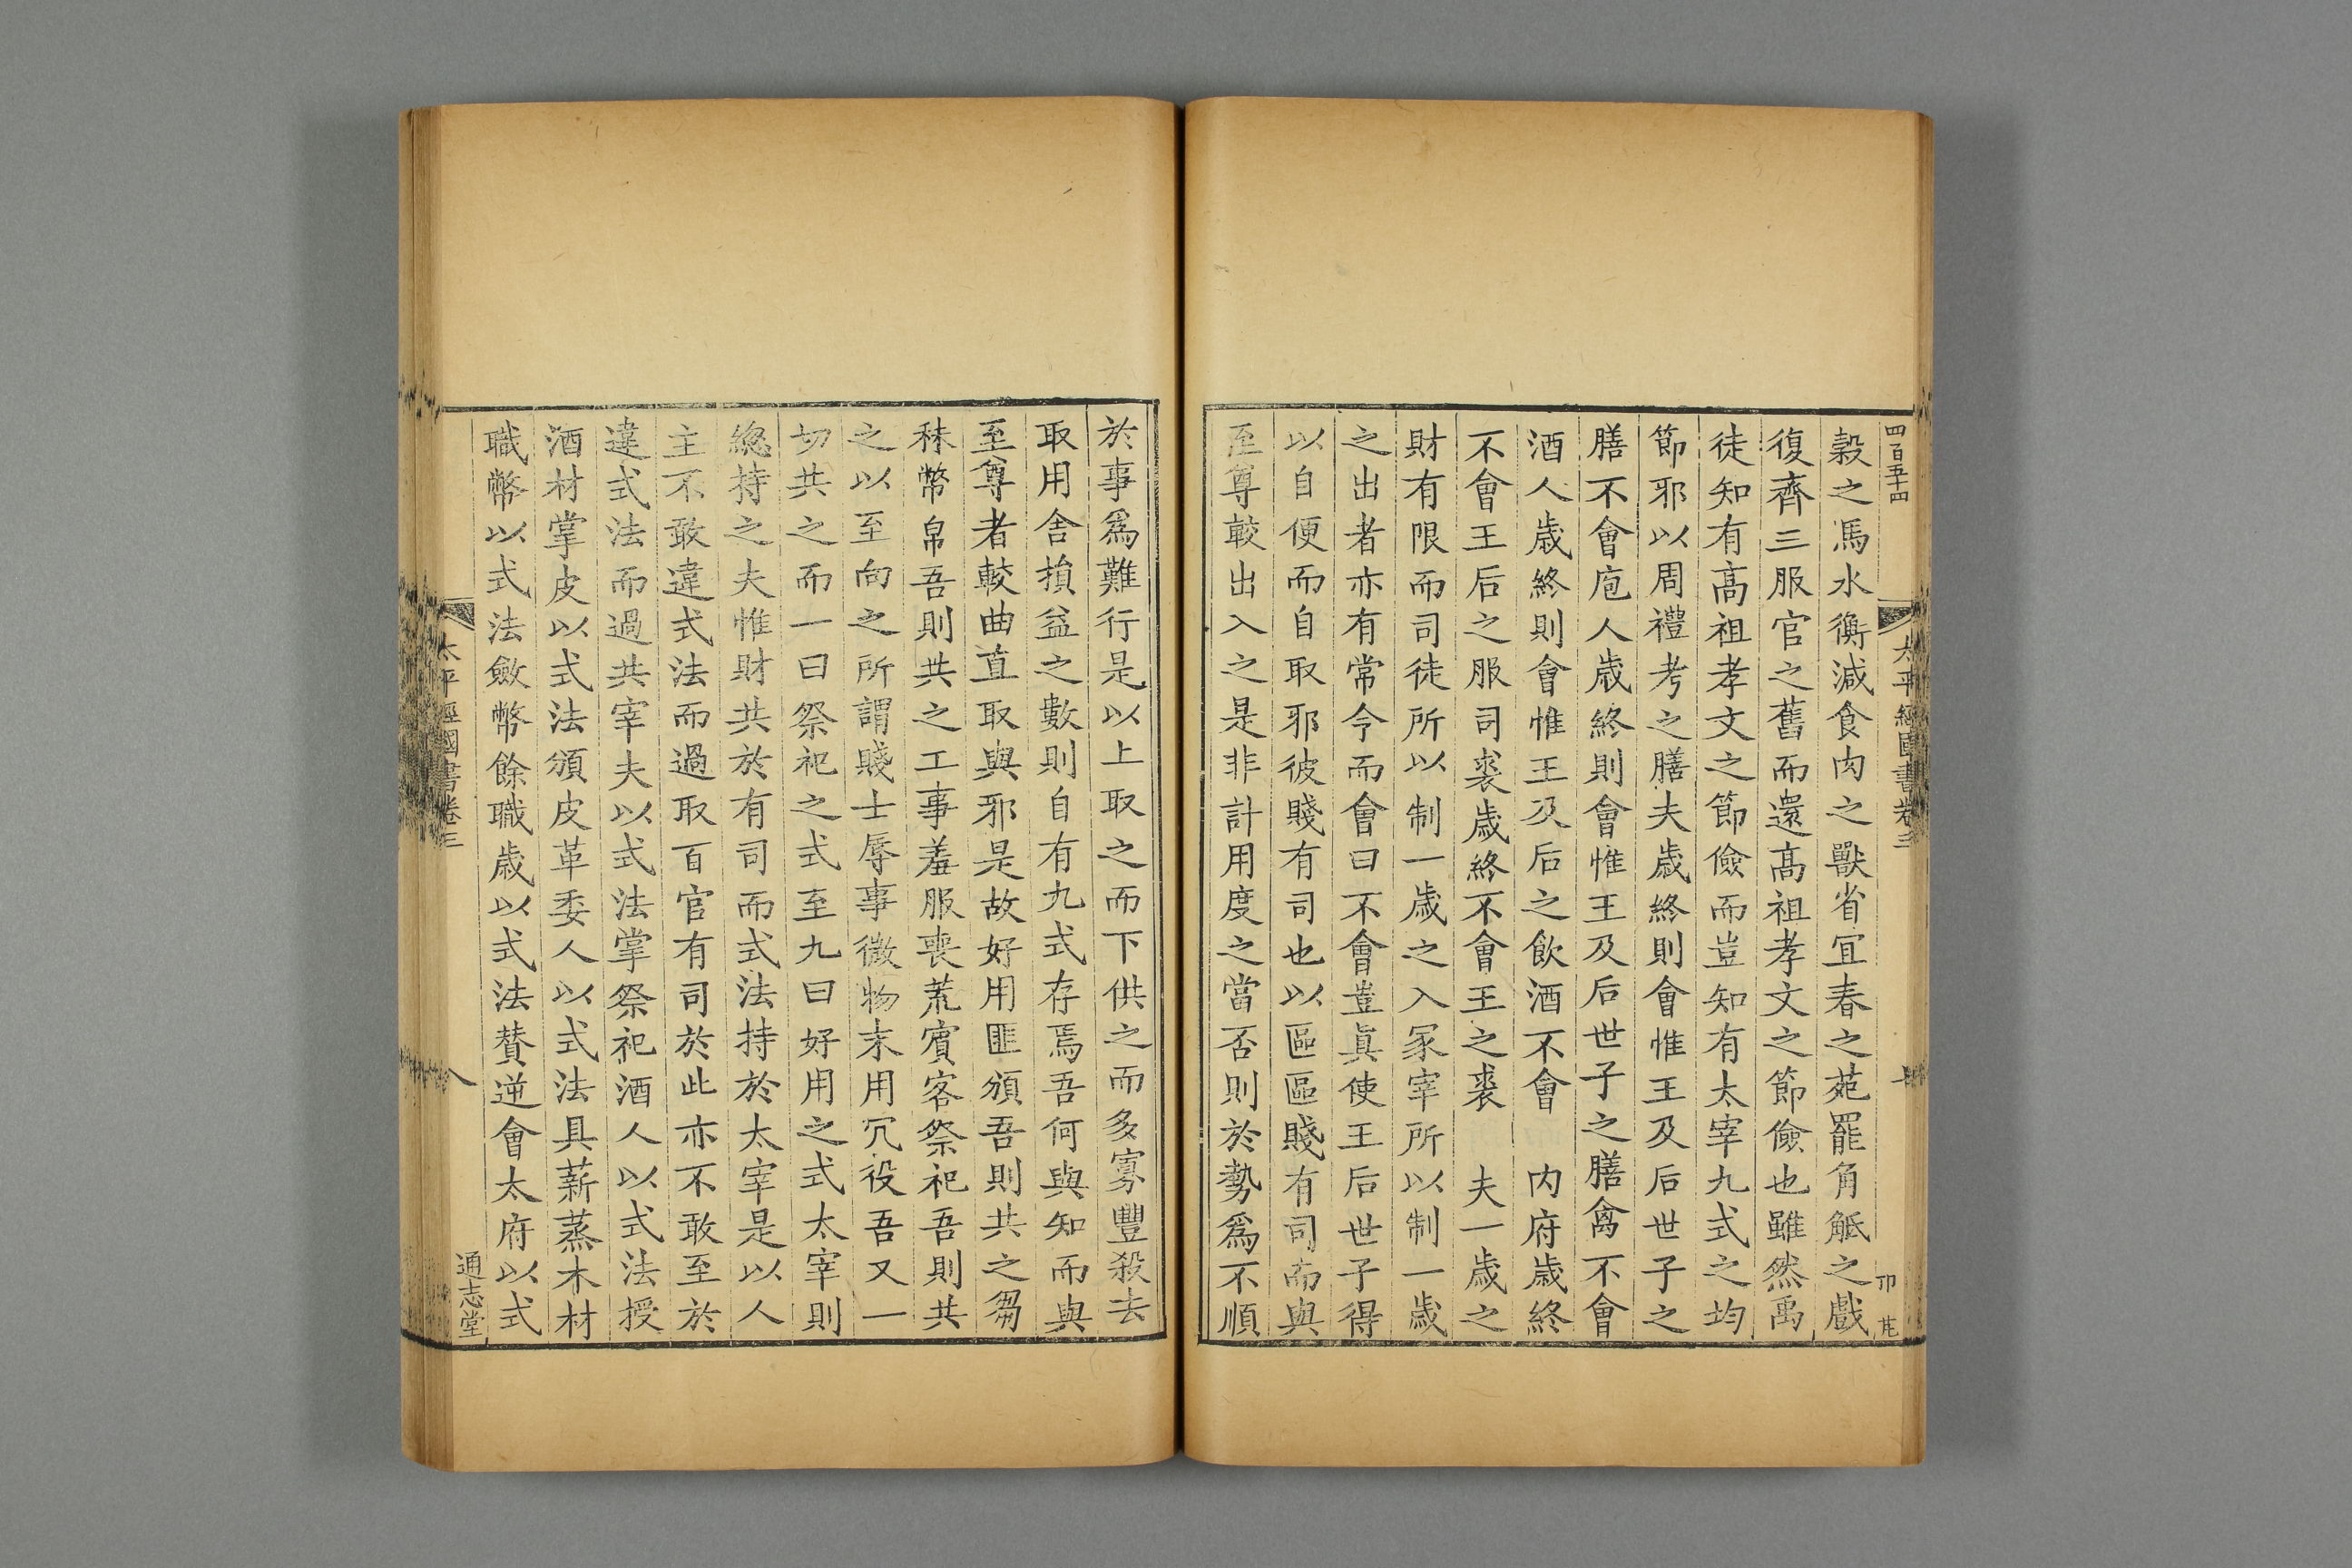 四百五十四
太平經國書卷三
穀之馬水衡減食肉之獸省宜春之苑罷角觝之戲
復齊三服官之舊而還髙祖孝文之節儉也雖然禹
徒知有髙祖孝文之節儉而豈知有太宰九式之均
節邪以周禮考之膳夫歲終則會惟王及后世子之
膳不會庖人歲終則會惟王及后世子之膳禽不會
酒人歲終則會惟王及后之飲酒不會 内府歲終
不會王后之服司裘歲終不會王之裘 夫一歲之
財有限而司徒所以制一歲之入冢宰所以制一歲
之出者亦有常今而會曰不會豈眞使王后世子得
以自便而自取邪彼賤有司也以區區賤有司而與
至尊較出入之是非計用度之當否則於勢爲不順
於事爲難行是以上取之而下供之而多寡豐殺去
取用舍損益之數則自有九式存焉吾何與知而與
至尊者較曲直取與邪是故好用匪頒吾則共之芻
秣幣帛吾則共之工事羞服喪荒賓客祭祀吾則共
之以至向之所謂賤士辱事微物末用冗役吾又一
切共之而一曰祭祀之式至九曰好用之式太宰則
緫持之夫惟財共於有司而式法持於太宰是以人
主不敢違式法而過取百官有司於此亦不敢至於
違式法而過共宰夫以式法掌祭祀酒人以式法授
酒材掌皮以式法頒皮革委人以式法具薪蒸木材
職幣以式法斂幣餘職歲以式法贊逆會太府以式
太平經國書卷三
八
通志堂